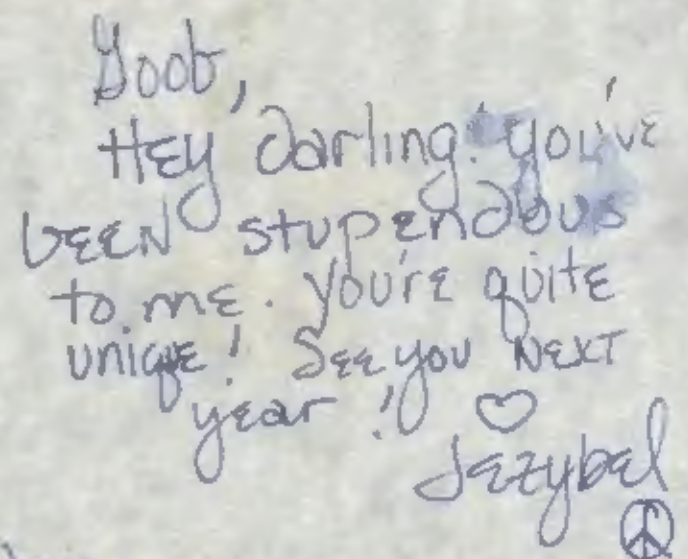 Goob,
Hey darling. you've
been stupendous
to me. you're quite
unique! See you next
year! ♡
Jezybel